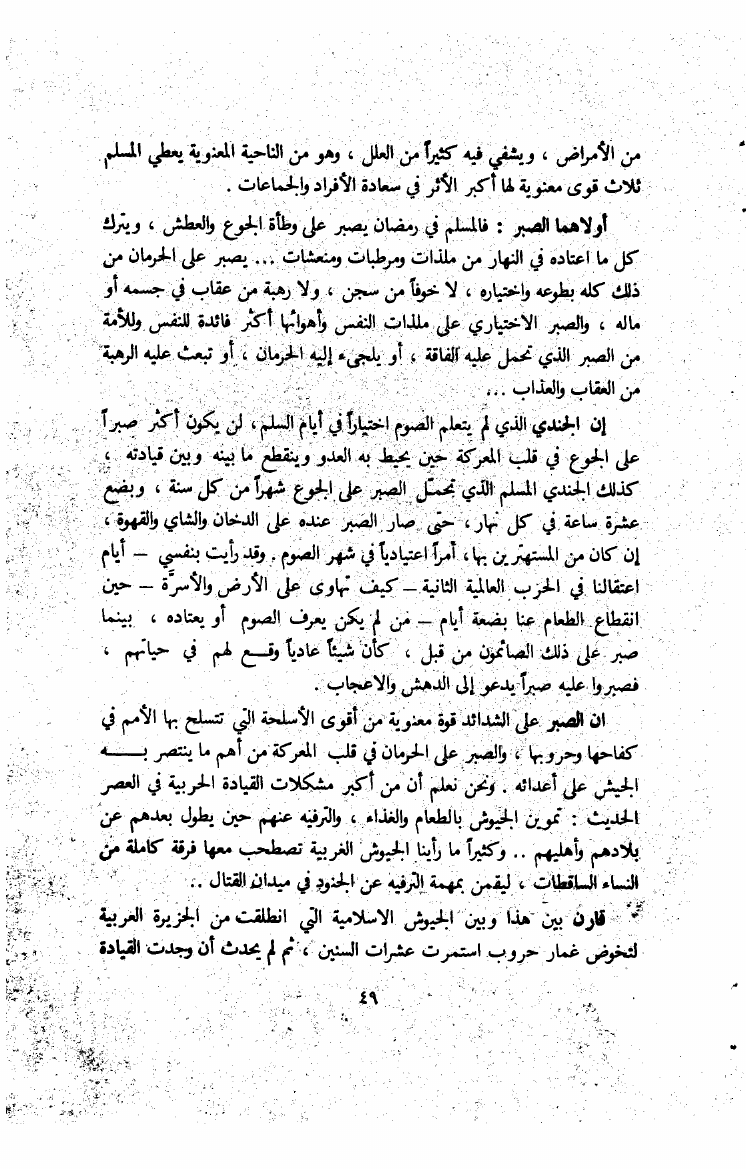 من الأمراض ، ويشفي فيه كثيراً من العلل ، وهو من الناحية المعنوية يعطي المسلم
ثلاث قوى معنوية لها أكبر الأثر في سعادة الأفراد والجماعات .
أولاهما الصبر : فالمسلم في رمضان يصبر على وطأة الجوع والعطش ، ويترك
كل ما اعتاده في النهار من ملذات ومرطبات ومنعشات ... يصبر على الحرمان من
ذلك كله بطوعه واختياره ، لا خوفاً من سجن ، ولا رهبة من عقاب في جسمه أو
ماله ، والصبر الاختياري على ملذات النفس وأهوائها أكثر فائدة للنفس وللأمة
من الصبر الذي تحمل عليه الفاقة ، أو يلجىء إليه الحرمان ، أو تبعث عليه الرهبة
من العقاب والعذاب ...
إن الجندي الذي لم يتعلم الصوم اختياراً في أيام السلم، لن يكون أكثر صبراً
على الجوع في قلب المعركة حين يحيط به العدو وينقطع ما بينه وبين قيادته ،
كذلك الجندي المسلم الذي تحمّل الصبر على الجوع شهراً من كل سنة ، وبضع
عشرة ساعة في كل نهار، حتى صار الصبر عنده على الدخان والشاي والقهوة ،
إن كان من المستهترين بها، أمراً اعتيادياً في شهر الصوم . وقد رأيت بنفسي – أيام
اعتقالنا في الحرب العالمية الثانية – كيف تهاوى على الأرض والأسرَّة – حين
انقطاع الطعام عنا بضعة أيام – من لم يكن يعرف الصوم أو يعتاده ، بينما
صبر على ذلك الصائمون من قبل ، كأن شيئاً عادياً وقـــع لهم في حياتهم ،
فصبروا عليه صبراً يدعو إلى الدهش والاعجاب .
ان الصبر على الشدائد قوة معنوية من أقوى الأسلحة التي تتسلح بها الأمم في
كفاحها وحروبها ، والصبر على الحرمان في قلب المعركة من أهم ما ينتصر بـــــه
الجيش على أعدائه . ونحن نعلم أن من أكبر مشكلات القيادة الحربية في العصر
الحديث : تموين الجيوش بالطعام والغذاء ، والترفيه عنهم حين يطول بعدهم عن
بلادهم وأهليهم .. وكثيراً ما رأينا الجيوش الغربية تصطحب معها فرقة كاملة من
النساء الساقطات ، ليقمن بمهمة الترفيه عن الجنود في ميدان القتال ..
قارن بين هذا وبين الجيوش الاسلامية التي انطلقت من الجزيرة العربية
لتخوض غمار حروب استمرت عشرات السنين ، ثم لم يحدث أن وجدت القيادة
٤٩